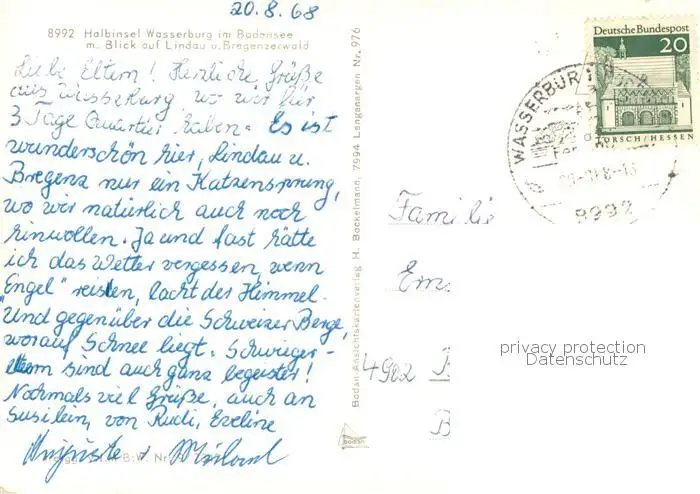 20.8.68
8992 Halbinsel Wasserburg im Bodensee
m. Blick auf Lindau u. Bregenzerwald
Liebe Eltern! Herzliche Grüße
aus Wasserburg, wo wir für
3 Tage Quartier haben. Es ist
wunderschön hier, Lindau u.
Bregenz nur ein Katzensprung,
wo wir natürlich auch noch
hinwollen. Ja und fast hätte
ich das Wetter vergessen, wenn
"Engel" reisten, lacht der Himmel.
Und gegenüber die Schweizer Berge,
worauf Schnee liegt. Schwieger-
eltern sind auch ganz begeistert!
Nochmals viel Grüße, auch an
Susilein, von Rudi, Eveline
Auguste
Bodan-Ansichtskartenverlag H. Bockelmann, 7994 Langenargen Nr. 976
bodan
Deutsche Bundespost
20
LORSCH/HESSEN
WASSERBUR
8992
Familie
4902
B
privacy protection
Datenschutz